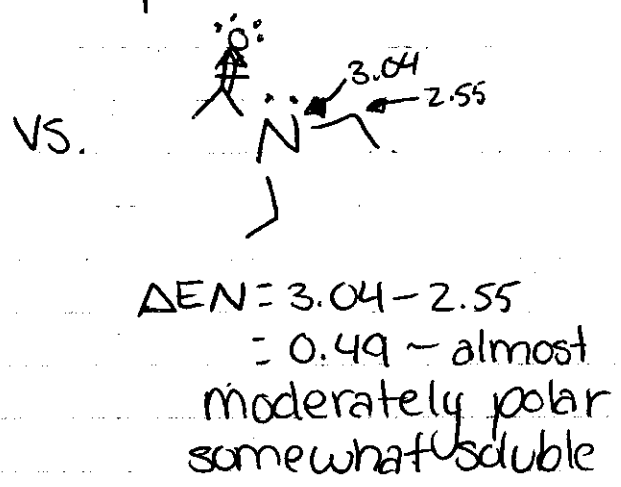 O
3.04
2.55
VS.
N
ΔEN = 3.04 - 2.55
= 0.49 ~ almost
moderately polar
somewhat soluble